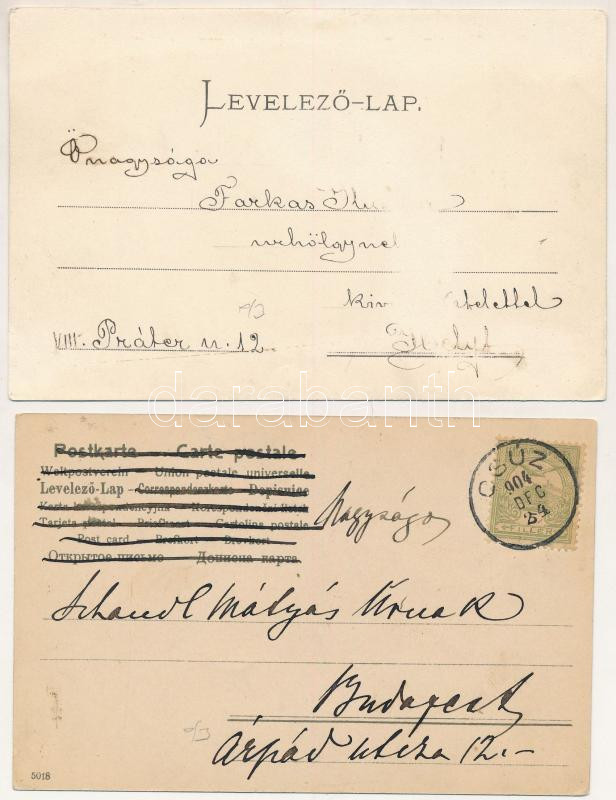 LEVELEZŐ-LAP.
Őnagysága
Farkas
kiv
VIII. Práter u. 12
Helyt
darabanth
Postkarte — Carte postale
Weltpostverein — Union postale universelle
Levelező-Lap — Correspondenzkarte — Dopisnice
Karta korespondencyjna — Korespondenční lístek
Tarjeta postal — Briefkaart — Cartolina postale
Post card — Brefkort — Brevkort
Открытое письмо — Дописна карта
Nagyságos
CSÚZ
904
DEC
24
FILLÉR
Schandl Mátyás Úrnak
Budapest
Árpád utcza 12.-
5018